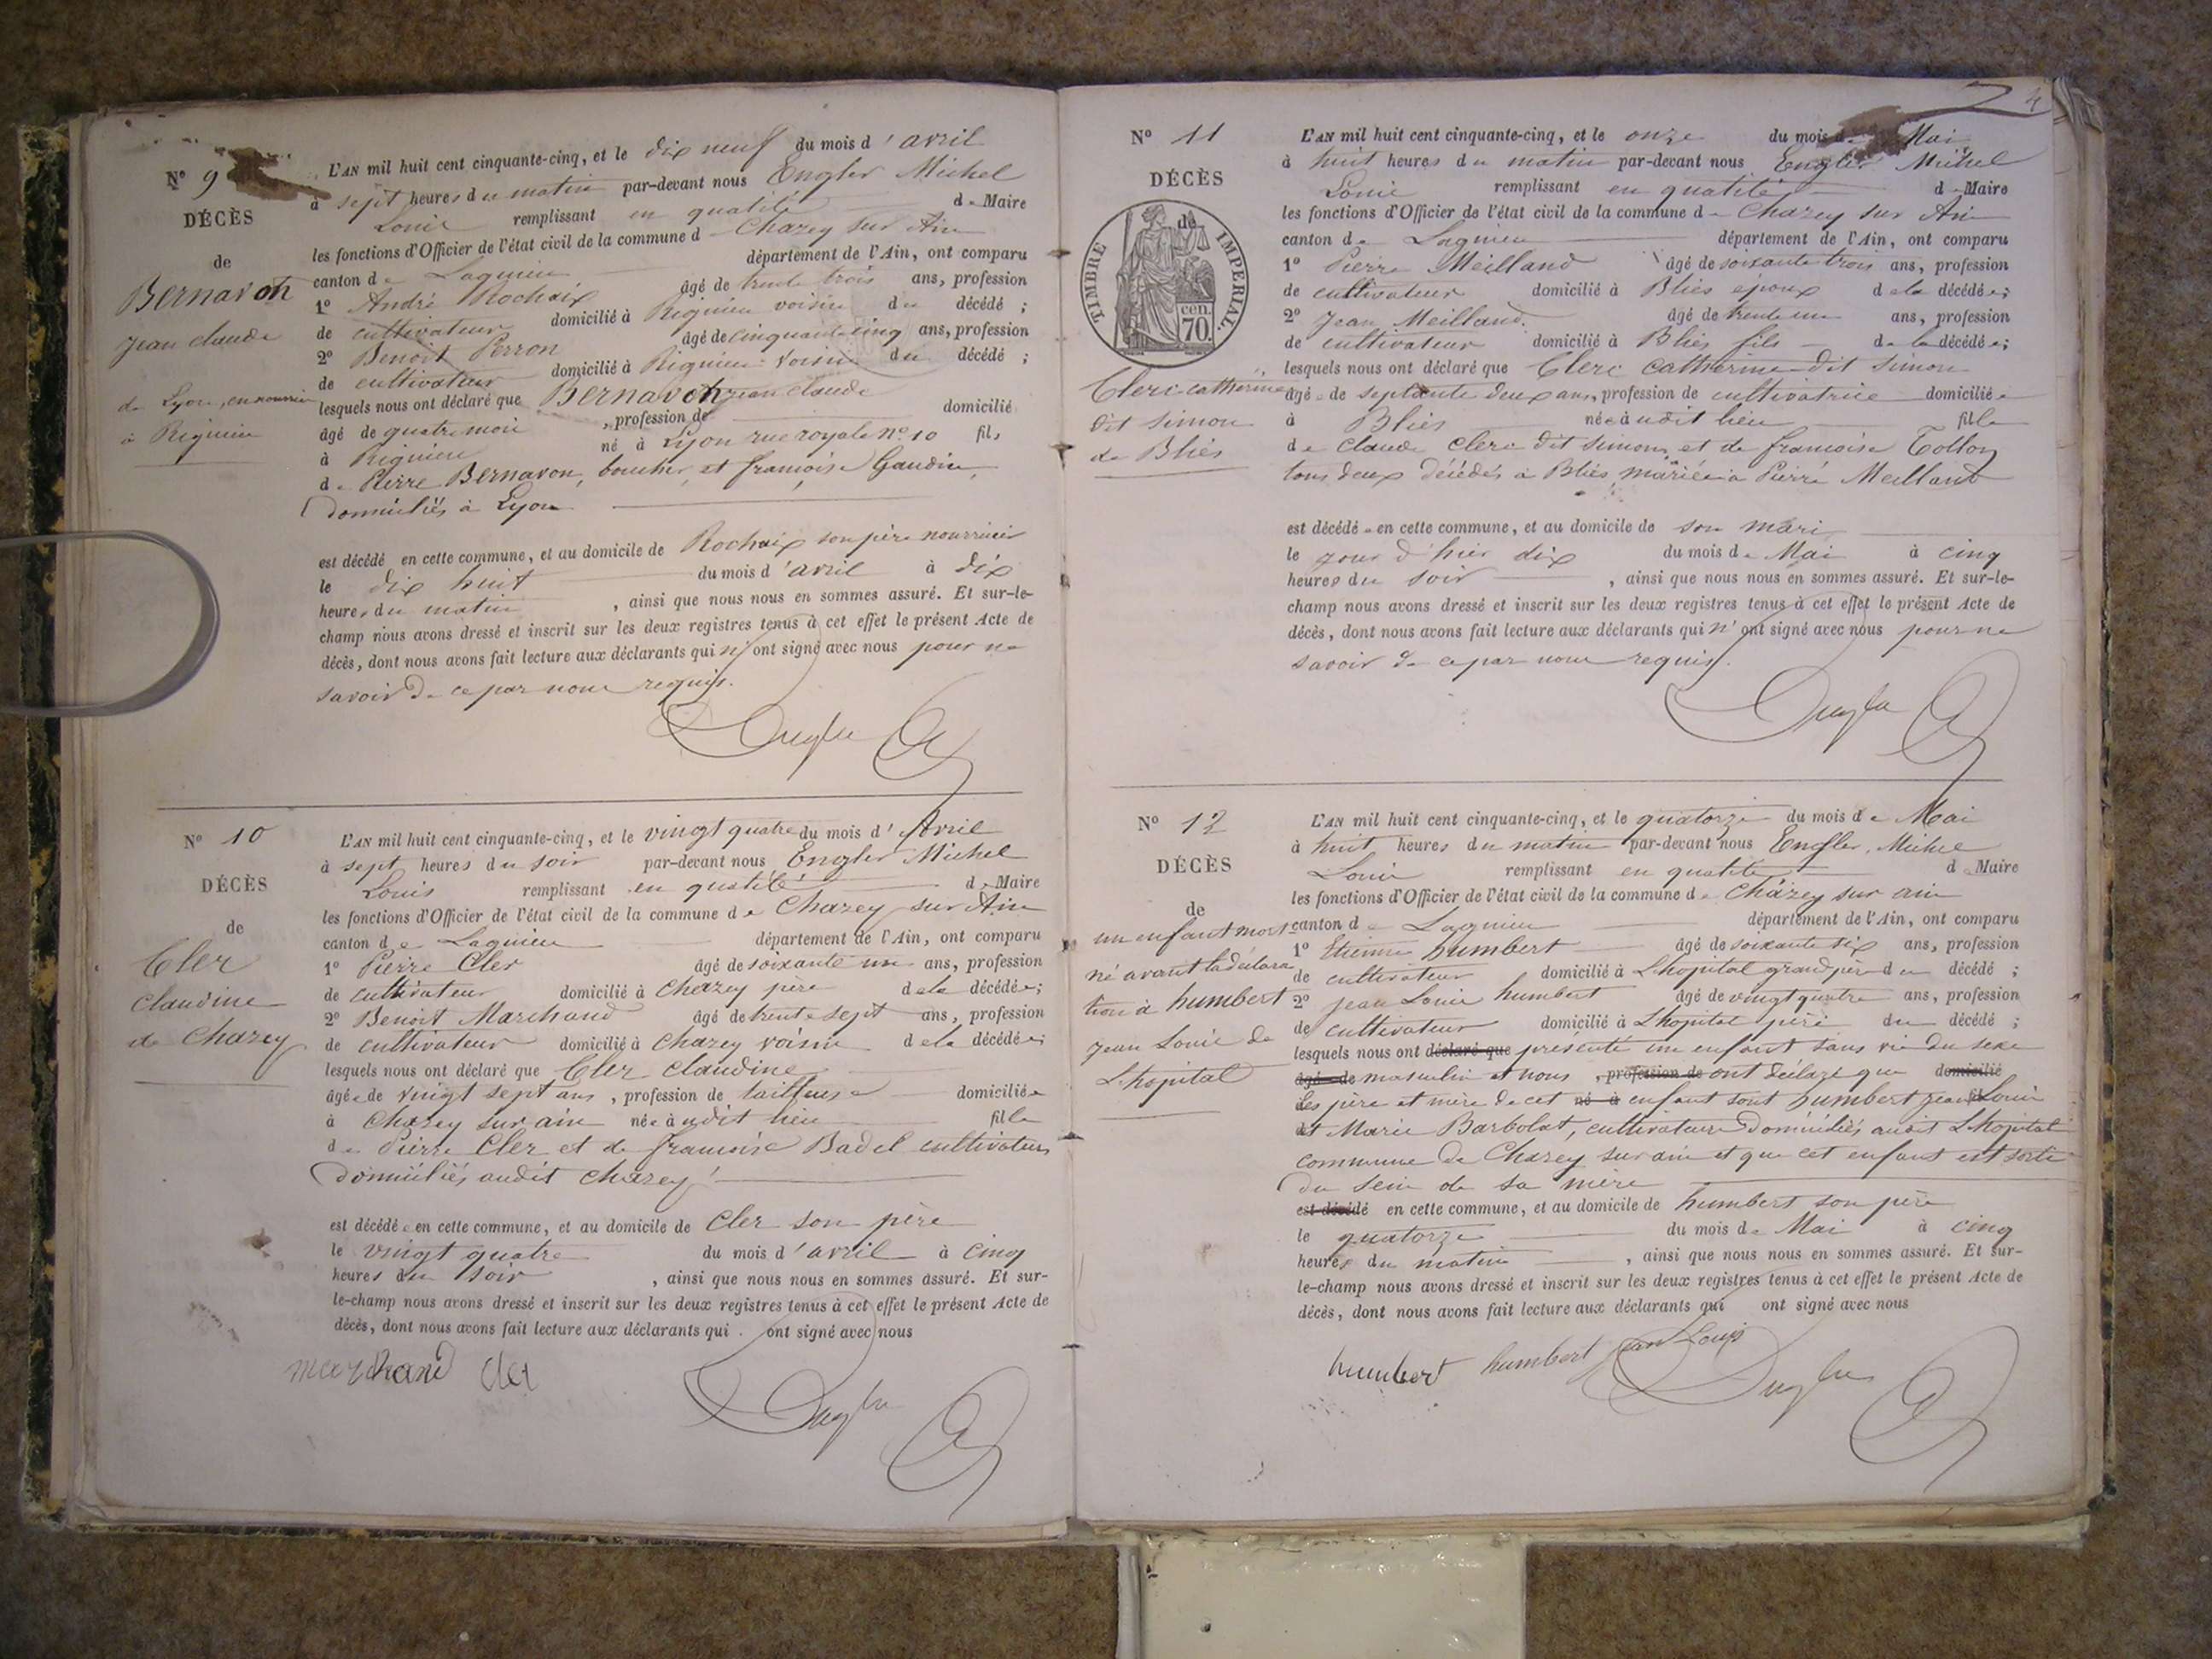 Nº 9
DÉCÈS
de
Bernavon
jean claude
de Lyon, en nourrice
à Rignieu
L'AN mil huit cent cinquante-cinq, et le dix neuf du mois d'avril
à sept heures du matin par-devant nous Engler Michel
Louis remplissant en qualité de Maire
les fonctions d'Officier de l'état civil de la commune de Chazey sur Ain
canton de Lagnieu département de l'Ain, ont comparu
1º André Rochaix âgé de trente trois ans, profession
de cultivateur domicilié à Rignieu voisin du décédé ;
2º Benoit Perron âgé de cinquante cinq ans, profession
de cultivateur domicilié à Rignieu voisin du décédé ;
lesquels nous ont déclaré que Bernavon jean claude
âgé de quatre mois , profession de domicilié
à Rignieu né à Lyon rue royale nº 10 fils
de Pierre Bernavon, boucher, et françoise Gaudin,
Domiciliés à Lyon
est décédé en cette commune, et au domicile de Rochaix son père nourricier
le dix huit du mois d'avril à dix
heures du matin , ainsi que nous nous en sommes assuré. Et sur-le-
champ nous avons dressé et inscrit sur les deux registres tenus à cet effet le présent Acte de
décès, dont nous avons fait lecture aux déclarants qui n'ont signé avec nous pour ne
savoir de ce par nous requis.
Engler
Nº 10
DÉCÈS
de
Cler
Claudine
de Chazey
L'AN mil huit cent cinquante-cinq, et le vingt quatre du mois d'Avril
à sept heures du soir par-devant nous Engler Michel
Louis remplissant en qualité de Maire
les fonctions d'Officier de l'état civil de la commune de Chazey sur Ain
canton de Lagnieu département de l'Ain, ont comparu
1º Pierre Cler âgé de soixante un ans, profession
de cultivateur domicilié à Chazey père de la décédée ;
2º Benoit Marchand âgé de trente sept ans, profession
de cultivateur domicilié à Chazey voisin de la décédée ;
lesquels nous ont déclaré que Cler Claudine
âgée de vingt sept ans , profession de tailleuse domiciliée
à Chazey sur ain née audit lieu fille
de Pierre Cler et de françoise Badel cultivateurs
Domiciliés audit Chazey
est décédée en cette commune, et au domicile de Cler son père
le vingt quatre du mois d'avril à cinq
heures du soir , ainsi que nous nous en sommes assuré. Et sur-
le-champ nous avons dressé et inscrit sur les deux registres tenus à cet effet le présent Acte de
décès, dont nous avons fait lecture aux déclarants qui ont signé avec nous
marchand cler
Engler
4
Nº 11
DÉCÈS
de
TIMBRE IMPERIAL
cen. 70.
Clerc catherine
dit simon
de Bliés
L'AN mil huit cent cinquante-cinq, et le onze du mois de Mai
à huit heures du matin par-devant nous Engler Michel
Louis remplissant en qualité de Maire
les fonctions d'Officier de l'état civil de la commune de Chazey sur Ain
canton de Lagnieu département de l'Ain, ont comparu
1º Pierre Meilland âgé de soixante trois ans, profession
de cultivateur domicilié à Bliés époux de la décédée ;
2º Jean Meilland. âgé de trente un ans, profession
de cultivateur domicilié à Bliés fils de la décédée ;
lesquels nous ont déclaré que Clerc catherine dit simon
âgée de septante deux ans, profession de cultivatrice domiciliée
à Bliés née audit lieu fille
de claude clerc dit simon, et de françoise Tollon
tous deux décédés à Bliés, mariée à Pierre Meilland
est décédée en cette commune, et au domicile de son mari
le jour d'hier dix du mois de Mai à cinq
heures du soir , ainsi que nous nous en sommes assuré. Et sur-le-
champ nous avons dressé et inscrit sur les deux registres tenus à cet effet le présent Acte de
décès, dont nous avons fait lecture aux déclarants qui n'ont signé avec nous pour ne
savoir de ce par nous requis.
Engler
Nº 12
DÉCÈS
de
un enfant mort
né avant la déclara
tion à humbert
jean Louis de
Lhopital
L'AN mil huit cent cinquante-cinq, et le quatorze du mois de Mai
à huit heures du matin par-devant nous Engler, Michel
Louis remplissant en qualité de Maire
les fonctions d'Officier de l'état civil de la commune de Chazey sur ain
canton de Lagnieu département de l'Ain, ont comparu
1º Etienne humbert âgé de soixante six ans, profession
de cultivateur domicilié à Lhopital grand père du décédé ;
2º jean Louis humbert âgé de vingt quatre ans, profession
de cultivateur domicilié à Lhopital père du décédé ;
lesquels nous ont déclaré que presenté un enfant sans vie du sexe
âgé de masculin et nous , profession de ont déclaré que domicilié
les père et mère de cet né à enfant sont humbert jean Louis
et Marie Barbolat, cultivateurs Domiciliés audit Lhopital
commune de Chazey sur ain et que cet enfant est sorti
du sein de sa mère
est décédé en cette commune, et au domicile de humbert son père
le quatorze du mois de Mai à cinq
heures du matin , ainsi que nous nous en sommes assuré. Et sur-
le-champ nous avons dressé et inscrit sur les deux registres tenus à cet effet le présent Acte de
décès, dont nous avons fait lecture aux déclarants qui ont signé avec nous
humbert humbert jean Louis
Engler